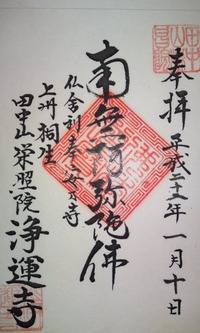 奉拝 平成二十二年一月十日
南無阿弥陀佛
仏舎利奉安の寺
上州桐生
田中山栄照院 浄運寺